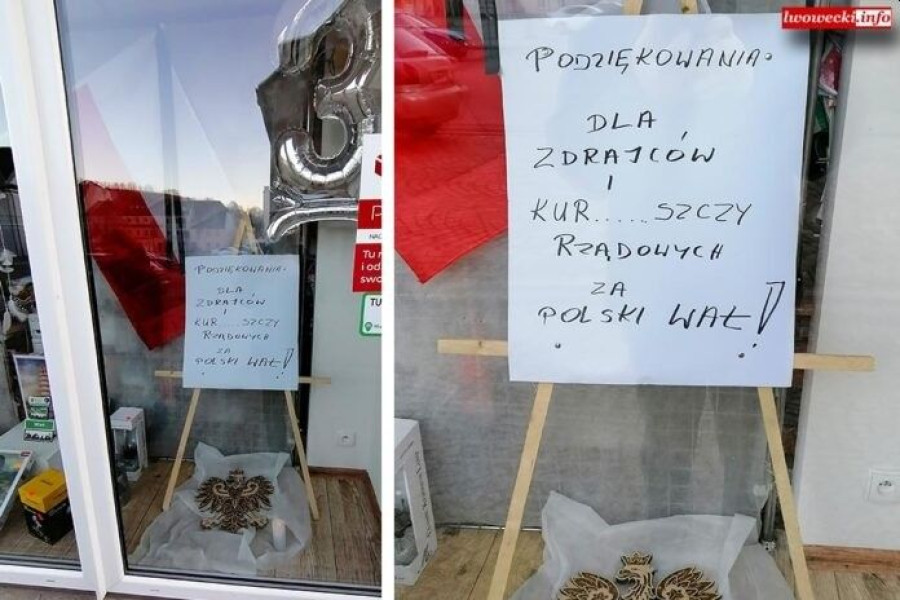 PODZIĘKOWANIA:
DLA
ZDRAJCÓW
I
KUR.....SZCZY
RZĄDOWYCH
ZA
POLSKI WAŁ!
Tu
i od
swo
TU
lwowecki.info
PODZIĘKOWANIA:
DLA
ZDRAJCÓW
I
KUR.....SZCZY
RZĄDOWYCH
ZA
POLSKI WAŁ!